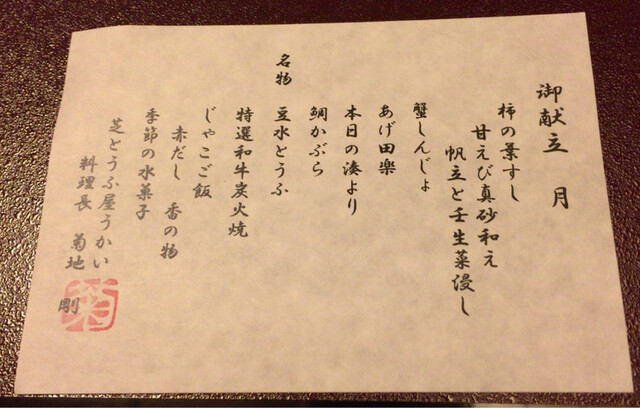 御献立　月
柿の葉すし
甘えび真砂和え
帆立と壬生菜浸し
蟹しんじょ
あげ田楽
本日の湊より
鯛かぶら
名物　豆水とうふ
特選和牛炭火焼
じゃこご飯
赤だし　香の物
季節の水菓子
芝とうふ屋うかい
料理長　菊地　剛